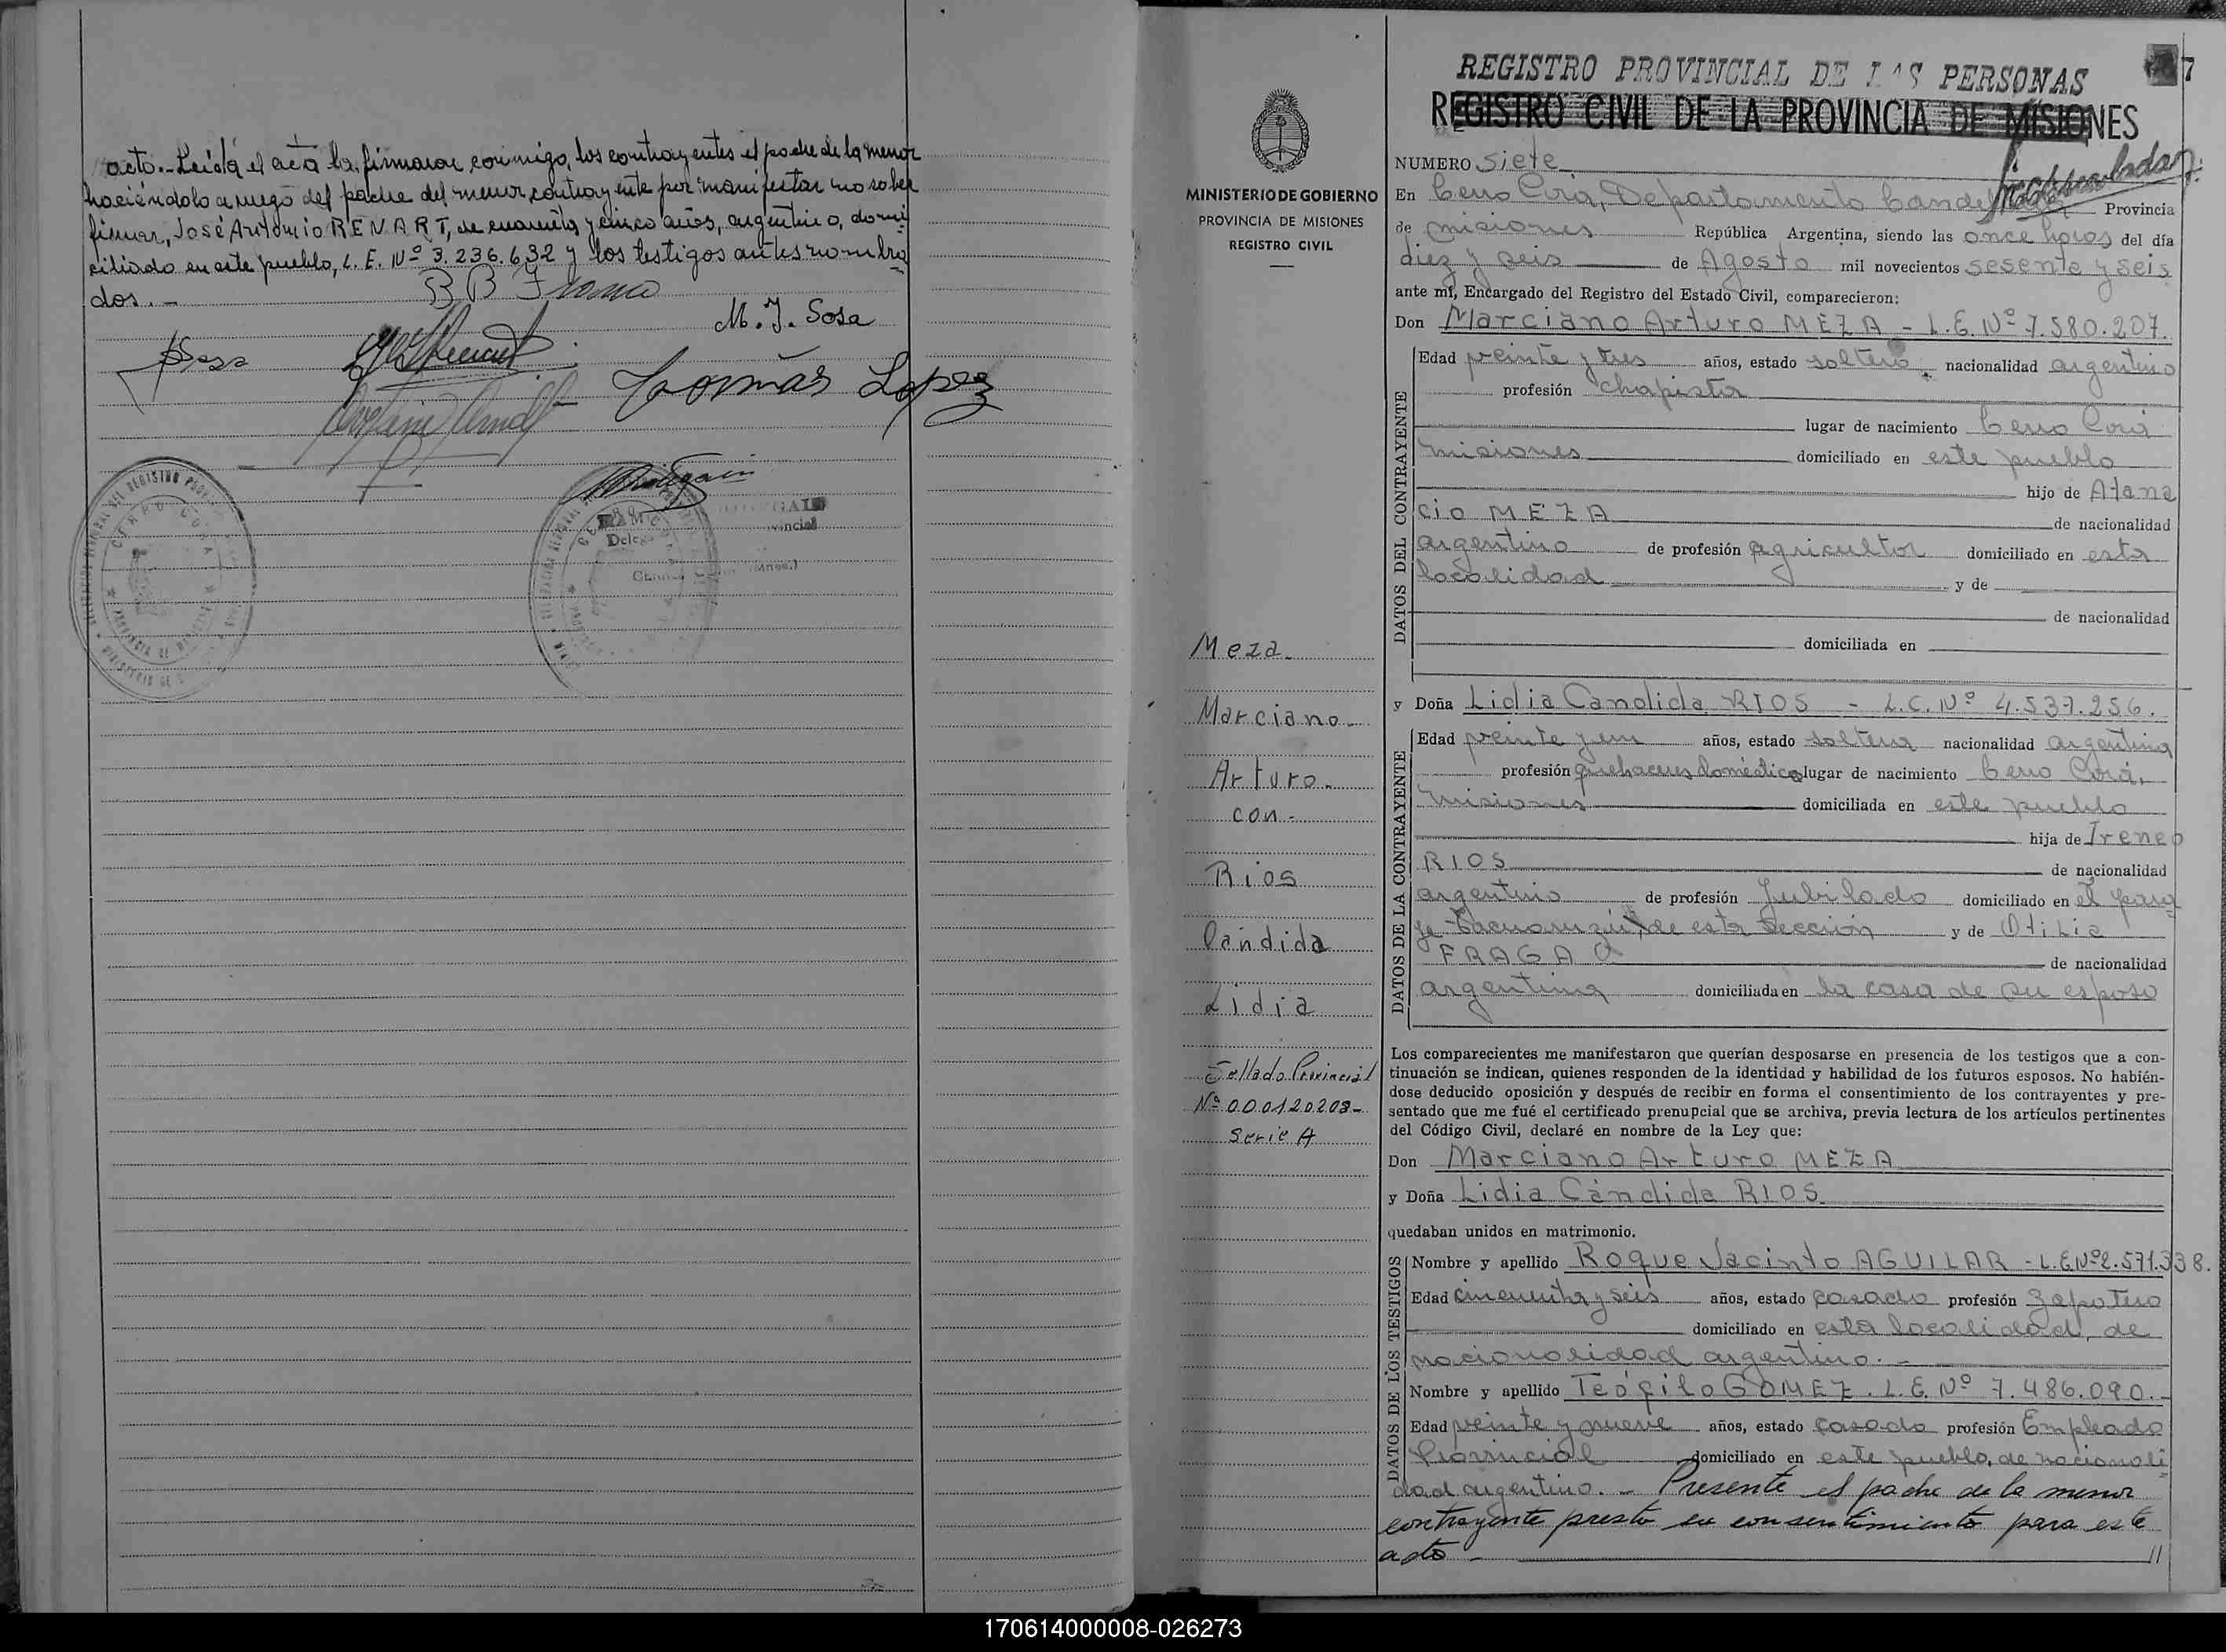 acto.- Leída el acta la firmaron conmigo, los contrayentes el padre de la menor
haciéndolo a ruego del padre del menor contrayente por manifestar no saber
firmar, José Antonio RENART, de cuarenta y cinco años, argentino, domi
ciliado en este pueblo, L. E. Nº 3.236.632 y los testigos antes nombra
dos.-
M. J. Sosa
Sosa
Tomás Lopez
CERRO CORA
Deleg
REGISTRO PROVINCIAL DE LAS PERSONAS
7
REGISTRO CIVIL DE LA PROVINCIA DE MISIONES
MINISTERIO DE GOBIERNO
PROVINCIA DE MISIONES
REGISTRO CIVIL
NUMERO Siete
En Cerro Corá, Departamento Candelaria Provincia
de Misiones República Argentina, siendo las once horas del día
diez y seis de Agosto mil novecientos sesenta y seis
ante mí, Encargado del Registro del Estado Civil, comparecieron:
Don Marciano Arturo MEZA - L.E. Nº 7.580.207.
DATOS DEL CONTRAYENTE
Edad veinte y tres años, estado soltero nacionalidad argentino
profesión Chapista
lugar de nacimiento Cerro Corá
Misiones domiciliado en este pueblo
hijo de Atana
cio MEZA de nacionalidad
argentino de profesión agricultor domiciliado en esta
localidad y de
de nacionalidad
domiciliada en
y Doña Lidia Candida RIOS - L.C. Nº 4.537.256.
DATOS DE LA CONTRAYENTE
Edad veinte y un años, estado soltera nacionalidad argentina
profesión quehaceres domésticos lugar de nacimiento Cerro Corá,
Misiones domiciliada en este pueblo
hija de Ireneo
RIOS de nacionalidad
argentino de profesión Jubilado domiciliado en el para
je Tacuaruzú, de esta Sección y de Otilia
FRAGA de nacionalidad
argentina domiciliada en la casa de su esposo
Los comparecientes me manifestaron que querían desposarse en presencia de los testigos que a con-
tinuación se indican, quienes responden de la identidad y habilidad de los futuros esposos. No habién-
dose deducido oposición y después de recibir en forma el consentimiento de los contrayentes y pre-
sentado que me fué el certificado prenupcial que se archiva, previa lectura de los artículos pertinentes
del Código Civil, declaré en nombre de la Ley que:
Don Marciano Arturo MEZA
y Doña Lidia Cándida RIOS
quedaban unidos en matrimonio.
DATOS DE LOS TESTIGOS
Nombre y apellido Roque Jacinto AGUILAR - L.E Nº 2.571.338.
Edad cincuenta y seis años, estado casado profesión Zapatero
domiciliado en esta localidad, de
nacionalidad argentino.-
Nombre y apellido Teófilo GOMEZ. L.E. Nº 7.486.090.-
Edad veinte y nueve años, estado casado profesión Empleado
Provincial domiciliado en este pueblo, de nacionali
dad argentino.- Presente el padre de la menor
contrayente presto su consentimiento para este
acto - //
Meza.
Marciano.
Arturo.
con.
Rios
Cándida
Lidia
Sellado Provincial
Nº 000120208-
Serie A
170614000008-026273